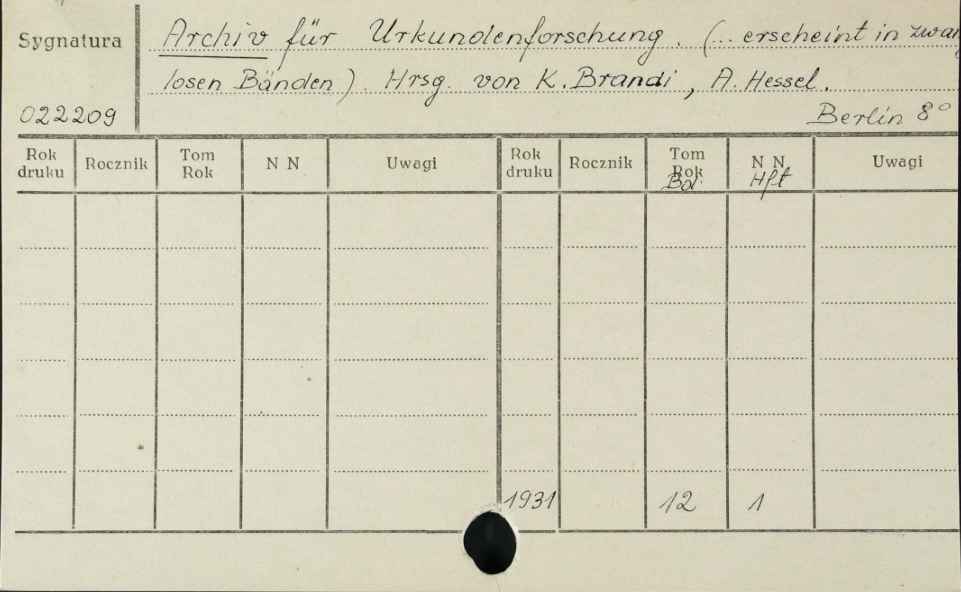 Sygnatura
Archiv für Urkundenforschung. (.. erscheint in zwang
losen Bänden). Hrsg. von K. Brandi, A. Hessel.
022209
Berlin 8°
Rok druku Rocznik Tom Rok N N Uwagi Rok druku Rocznik Tom Rok Bd. N N Hft Uwagi
1931 12 1